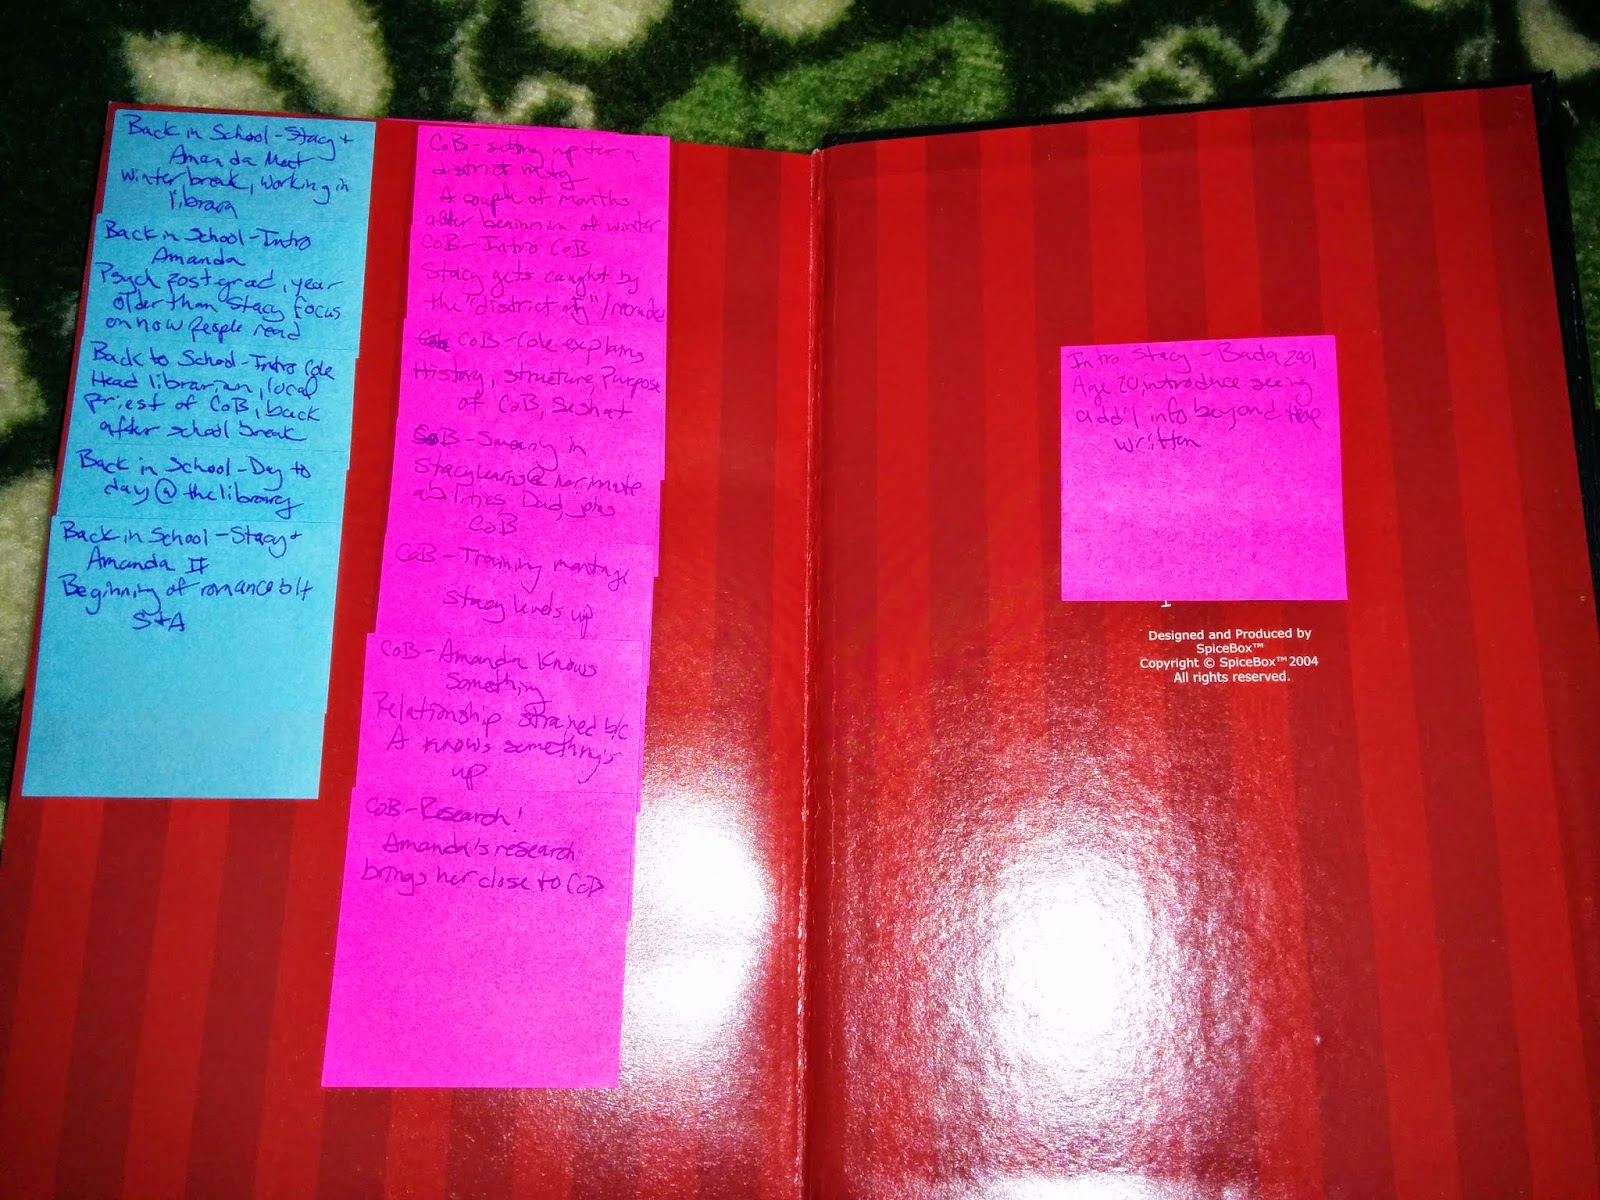 Back in School - Stacy +
Amanda Meet
Winter break, working in
library
Back in School - Intro
Amanda
Psych postgrad, year
older than Stacy focus
on how people read
Back to School - Intro Cole
Head librarian, local
priest of CoB, back
after school break
Back in School - Day to
day @ the library
Back in School - Stacy +
Amanda II
Beginning of romance b/t
S+A
CoB - setting up for a
district mtg
A couple of months
after beginning of winter
CoB - Intro CoB
Stacy gets caught by
the "district mtg" /
CoB - Cole explains
History, structure, Purpose
of CoB, Seshat
CoB - Swearing in
Stacy learns @ her innate
abilities, Dad, joins
CoB
CoB - Training montage
Stacy levels up
CoB - Amanda Knows
Something
Relationship strained b/c
A knows something's
up
CoB - Research!
Amanda's research
brings her close to CoB
Intro Stacy - 2001
Age 20, introduce seeing
add'l info beyond the
written
Designed and Produced by
SpiceBox™
Copyright © SpiceBox™2004
All rights reserved.